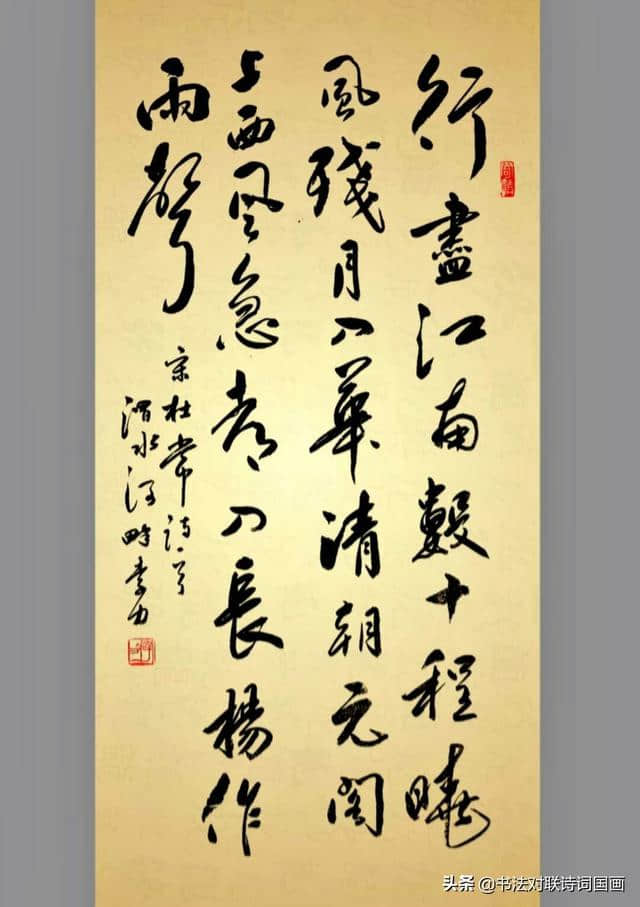 行盡江南數十程曉
風殘月入華清朝元閣
上西風急都入長楊作
雨聲
宋杜常诗
渭水河畔李力
头条 @书法对联诗词国画